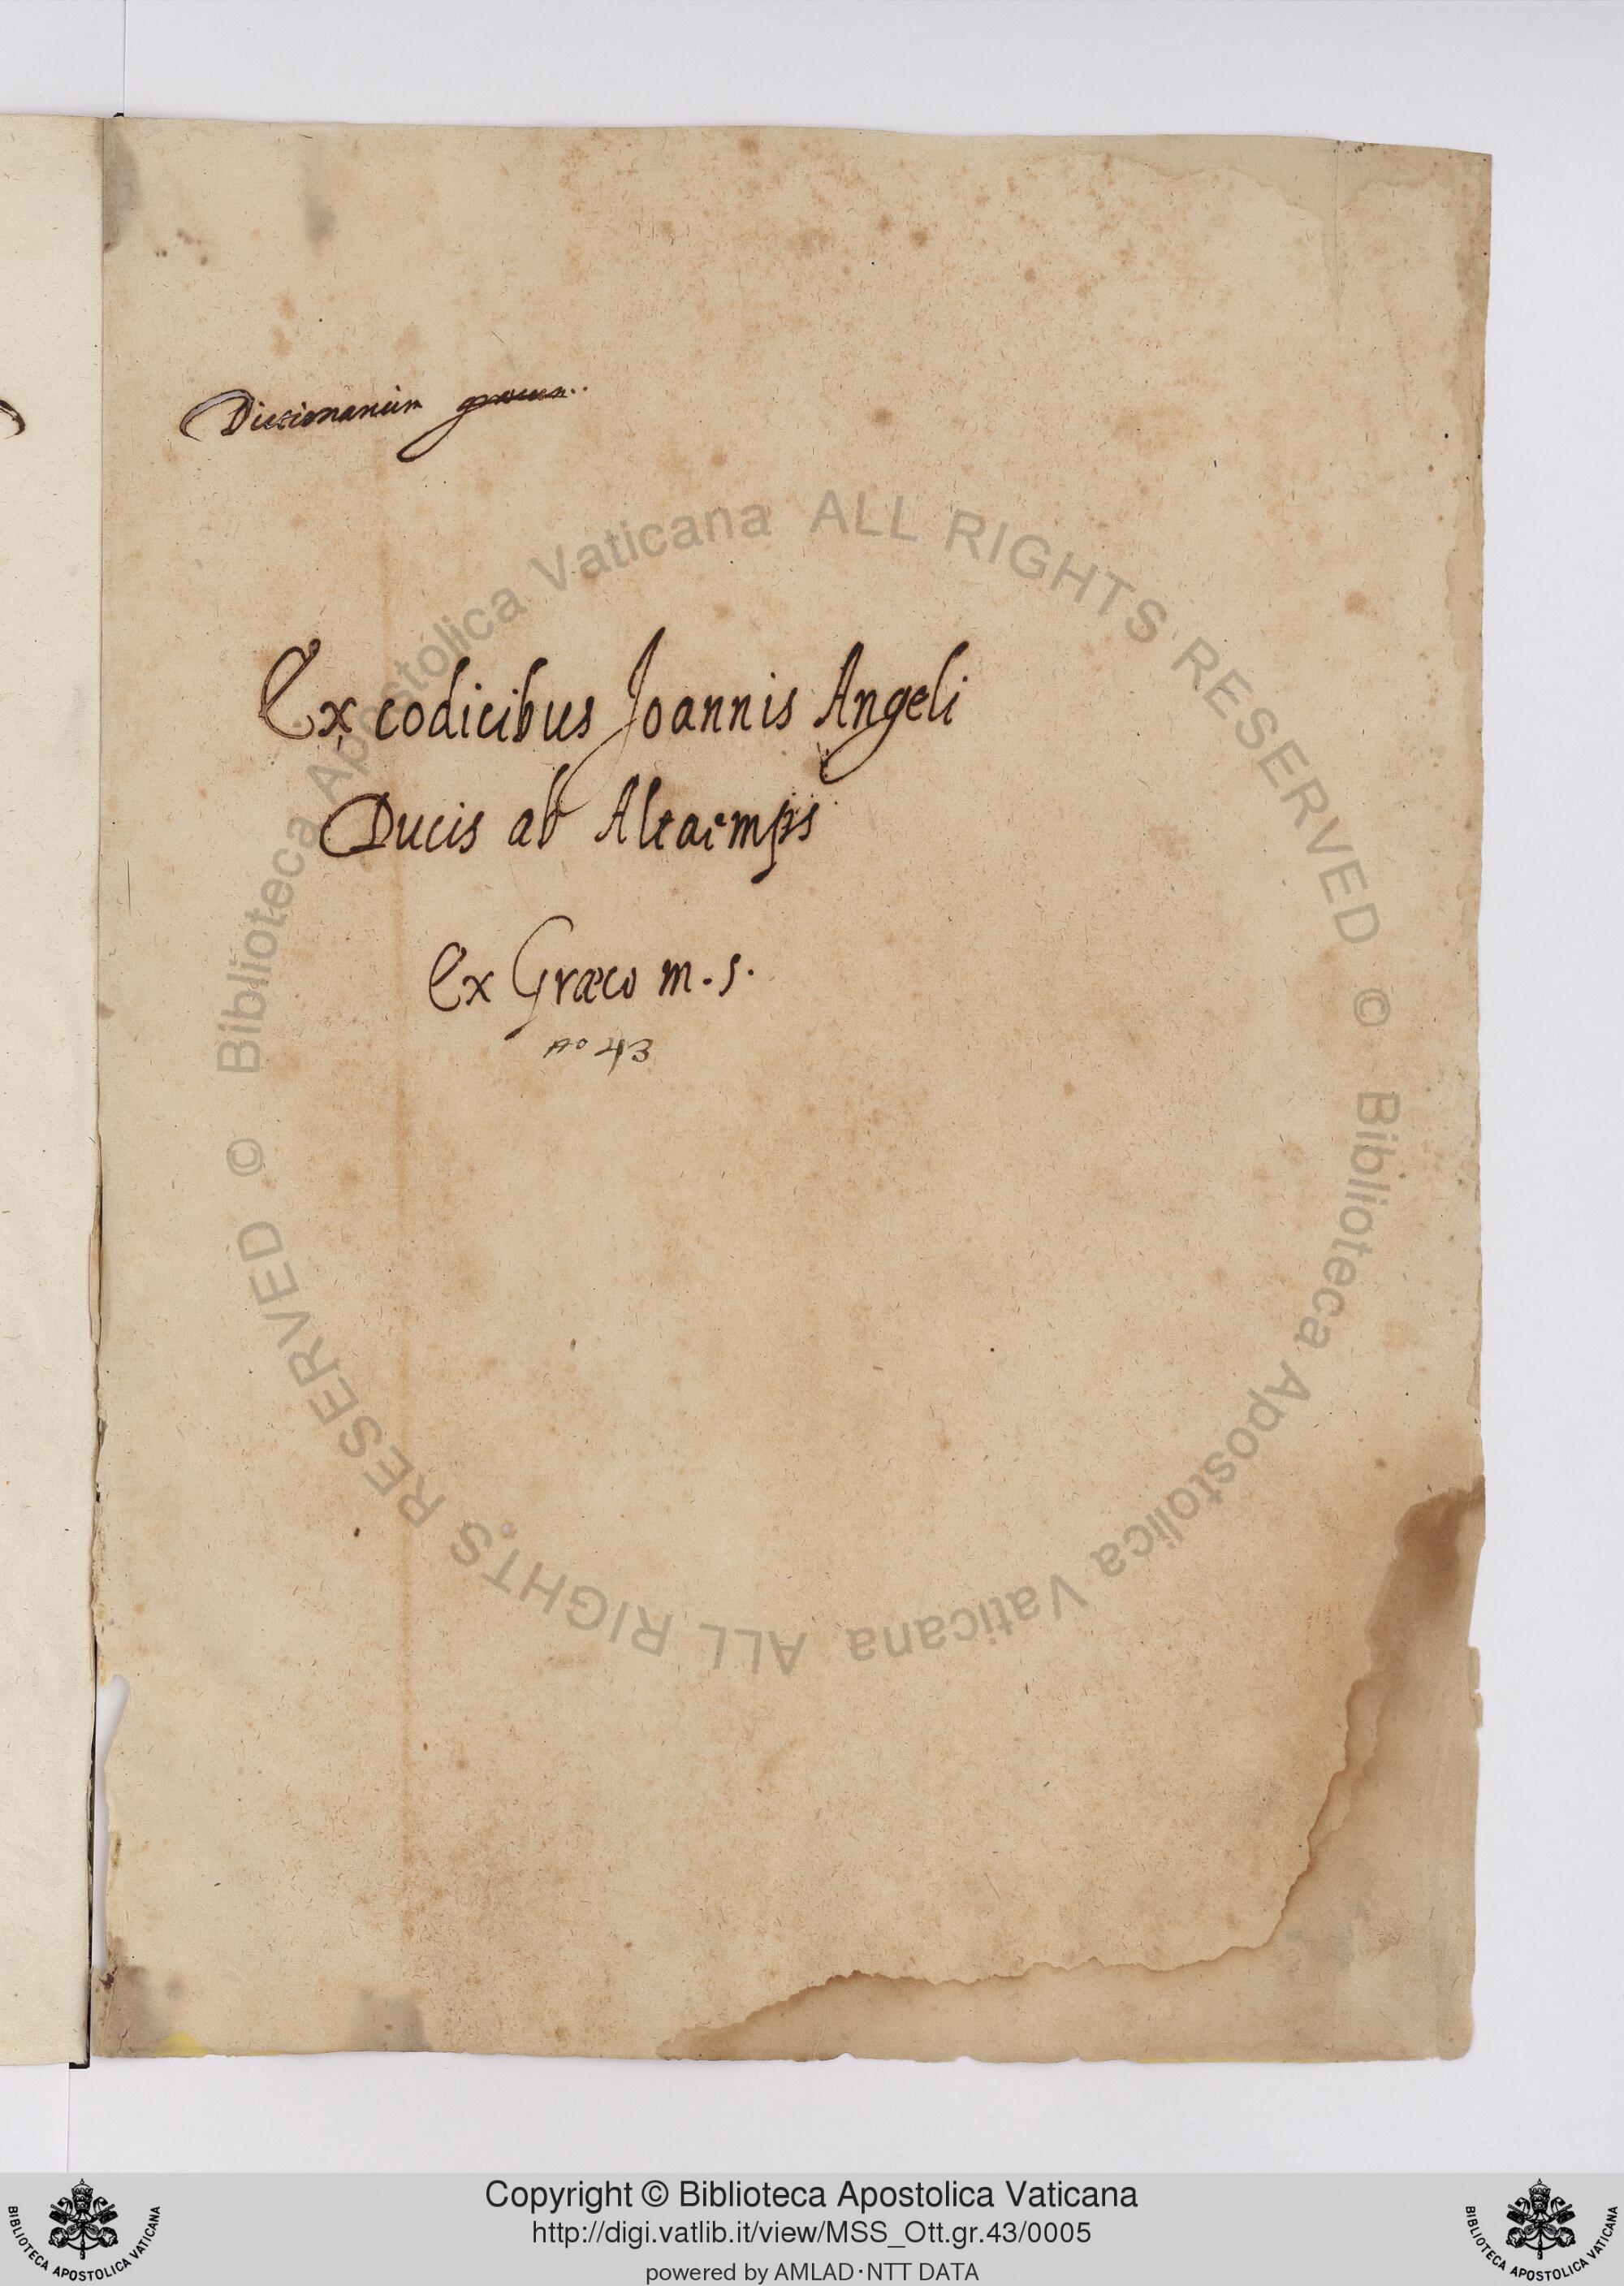 Dictionarium græcum.
Ex codicibus Joannis Angeli
Ducis ab Altaemps
Ex Græco m.s.
43
© Biblioteca Apostolica Vaticana ALL RIGHTS RESERVED
© Biblioteca Apostolica Vaticana ALL RIGHTS RESERVED
Copyright © Biblioteca Apostolica Vaticana
http://digi.vatlib.it/view/MSS_Ott.gr.43/0005
powered by AMLAD·NTT DATA
BIBLIOTECA APOSTOLICA VATICANA
BIBLIOTECA APOSTOLICA VATICANA